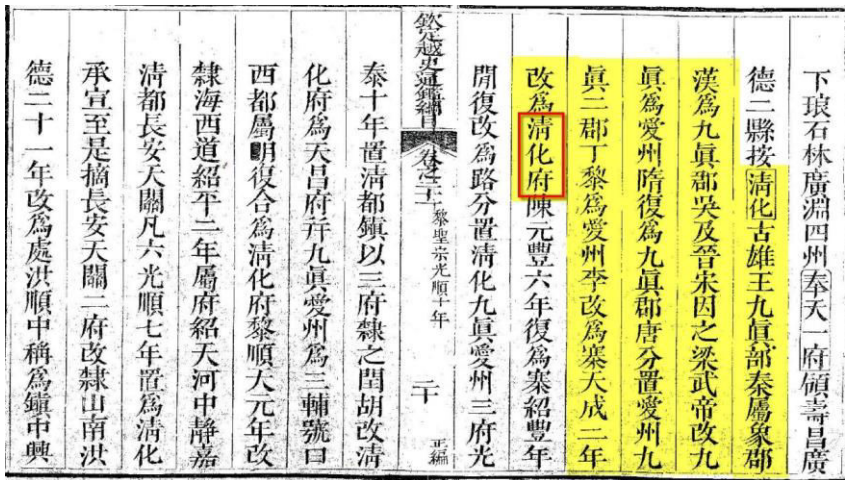 下琅石林廣淵四州奉天一府領壽昌廣
德二縣按清化古雄王九眞部秦屬象郡
漢爲九眞郡吳及晉宋因之梁武帝改九
眞爲愛州隋復爲九眞郡唐分置愛州九
眞二郡丁黎爲愛州李改爲寨大成二年
改爲清化府陳元豐六年復爲寨紹豐年
閒復改爲路分置清化九眞愛州三府光
欽定越史通鑑綱目 卷之二十一 黎聖宗光順十年 二十 正編
泰十年置清都鎮以三府隸之閏胡改清
化府爲天昌府幷九眞愛州爲三輔號曰
西都屬明復合爲清化府黎順天元年改
隸海西道紹平二年屬府紹天河中靜嘉
清都長安天關凡六光順七年置爲清化
承宣至是摘長安天關二府改隸山南洪
德二十一年改爲處洪順中稱爲鎮中興